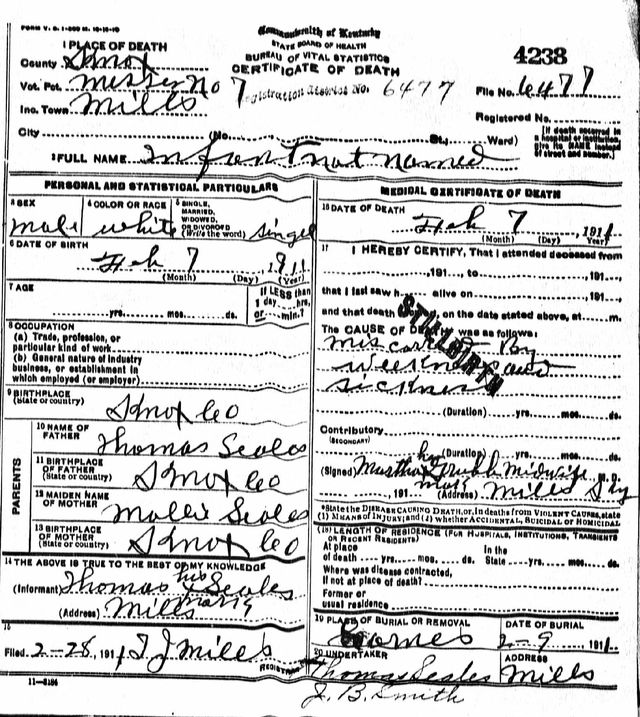 FORM V. S. 1-
Commonwealth of Kentucky
STATE BOARD OF HEALTH
BUREAU OF VITAL STATISTICS
CERTIFICATE OF DEATH
4238
1 PLACE OF DEATH
County Knox
Vot. Pct. No 7 Registration District No. 6477 File No. 6477
Inc. Town Mills
Registered No.
City (No. St.; Ward)
[If death occurred in a hospital or institution, give its NAME instead of street and number.]
2 FULL NAME Infant not named
PERSONAL AND STATISTICAL PARTICULARS
3 SEX male
4 COLOR OR RACE white
5 SINGLE, MARRIED, WIDOWED, OR DIVORCED (Write the word) singel
6 DATE OF BIRTH
Feb 7, 1911
(Month) (Day) (Year)
7 AGE
yrs. mos. ds.
If LESS than 1 day hrs. or min.?
8 OCCUPATION
(a) Trade, profession, or particular kind of work
(b) General nature of industry business, or establishment in which employed (or employer)
9 BIRTHPLACE (State or country) Knox Co
PARENTS
10 NAME OF FATHER Thomas Seales
11 BIRTHPLACE OF FATHER (State or country) Knox Co
12 MAIDEN NAME OF MOTHER Mollie Seales
13 BIRTHPLACE OF MOTHER (State or country) Knox Co
14 THE ABOVE IS TRUE TO THE BEST OF MY KNOWLEDGE
(Informant) Thomas his Seales
mark
(Address) Mills
15
Filed 2-28, 191 1 J J Mills
REGISTRAR
11-3184
MEDICAL CERTIFICATE OF DEATH
16 DATE OF DEATH
Feb 7, 1911
(Month) (Day) (Year)
17 I HEREBY CERTIFY, That I attended deceased from
, 191 , to , 191 ,
that I last saw h alive on , 191 ,
and that death , on the date stated above, at m.
The CAUSE OF DEATH was as follows:
STILLBORN
By
sickness
(Duration) yrs. mos. ds.
Contributory
(SECONDARY)
(Duration) yrs. mos. ds.
(Signed) Martha her midwife M. D.
mark
, 191 (Address) Mills Ky
*State the DISEASE CAUSING DEATH, or, in deaths from VIOLENT CAUSES, state (1) MEANS OF INJURY; and (2) whether ACCIDENTAL, SUICIDAL or HOMICIDAL
(18) LENGTH OF RESIDENCE (FOR HOSPITALS, INSTITUTIONS, TRANSIENTS OR RECENT RESIDENTS)
At place of death yrs. mos. ds. In the State yrs. mos. ds.
Where was disease contracted, if not at place of death?
Former or usual residence
19 PLACE OF BURIAL OR REMOVAL
DATE OF BURIAL
2-9, 1911
20 UNDERTAKER
Thomas Seales
ADDRESS
Mills
J. B. Smith